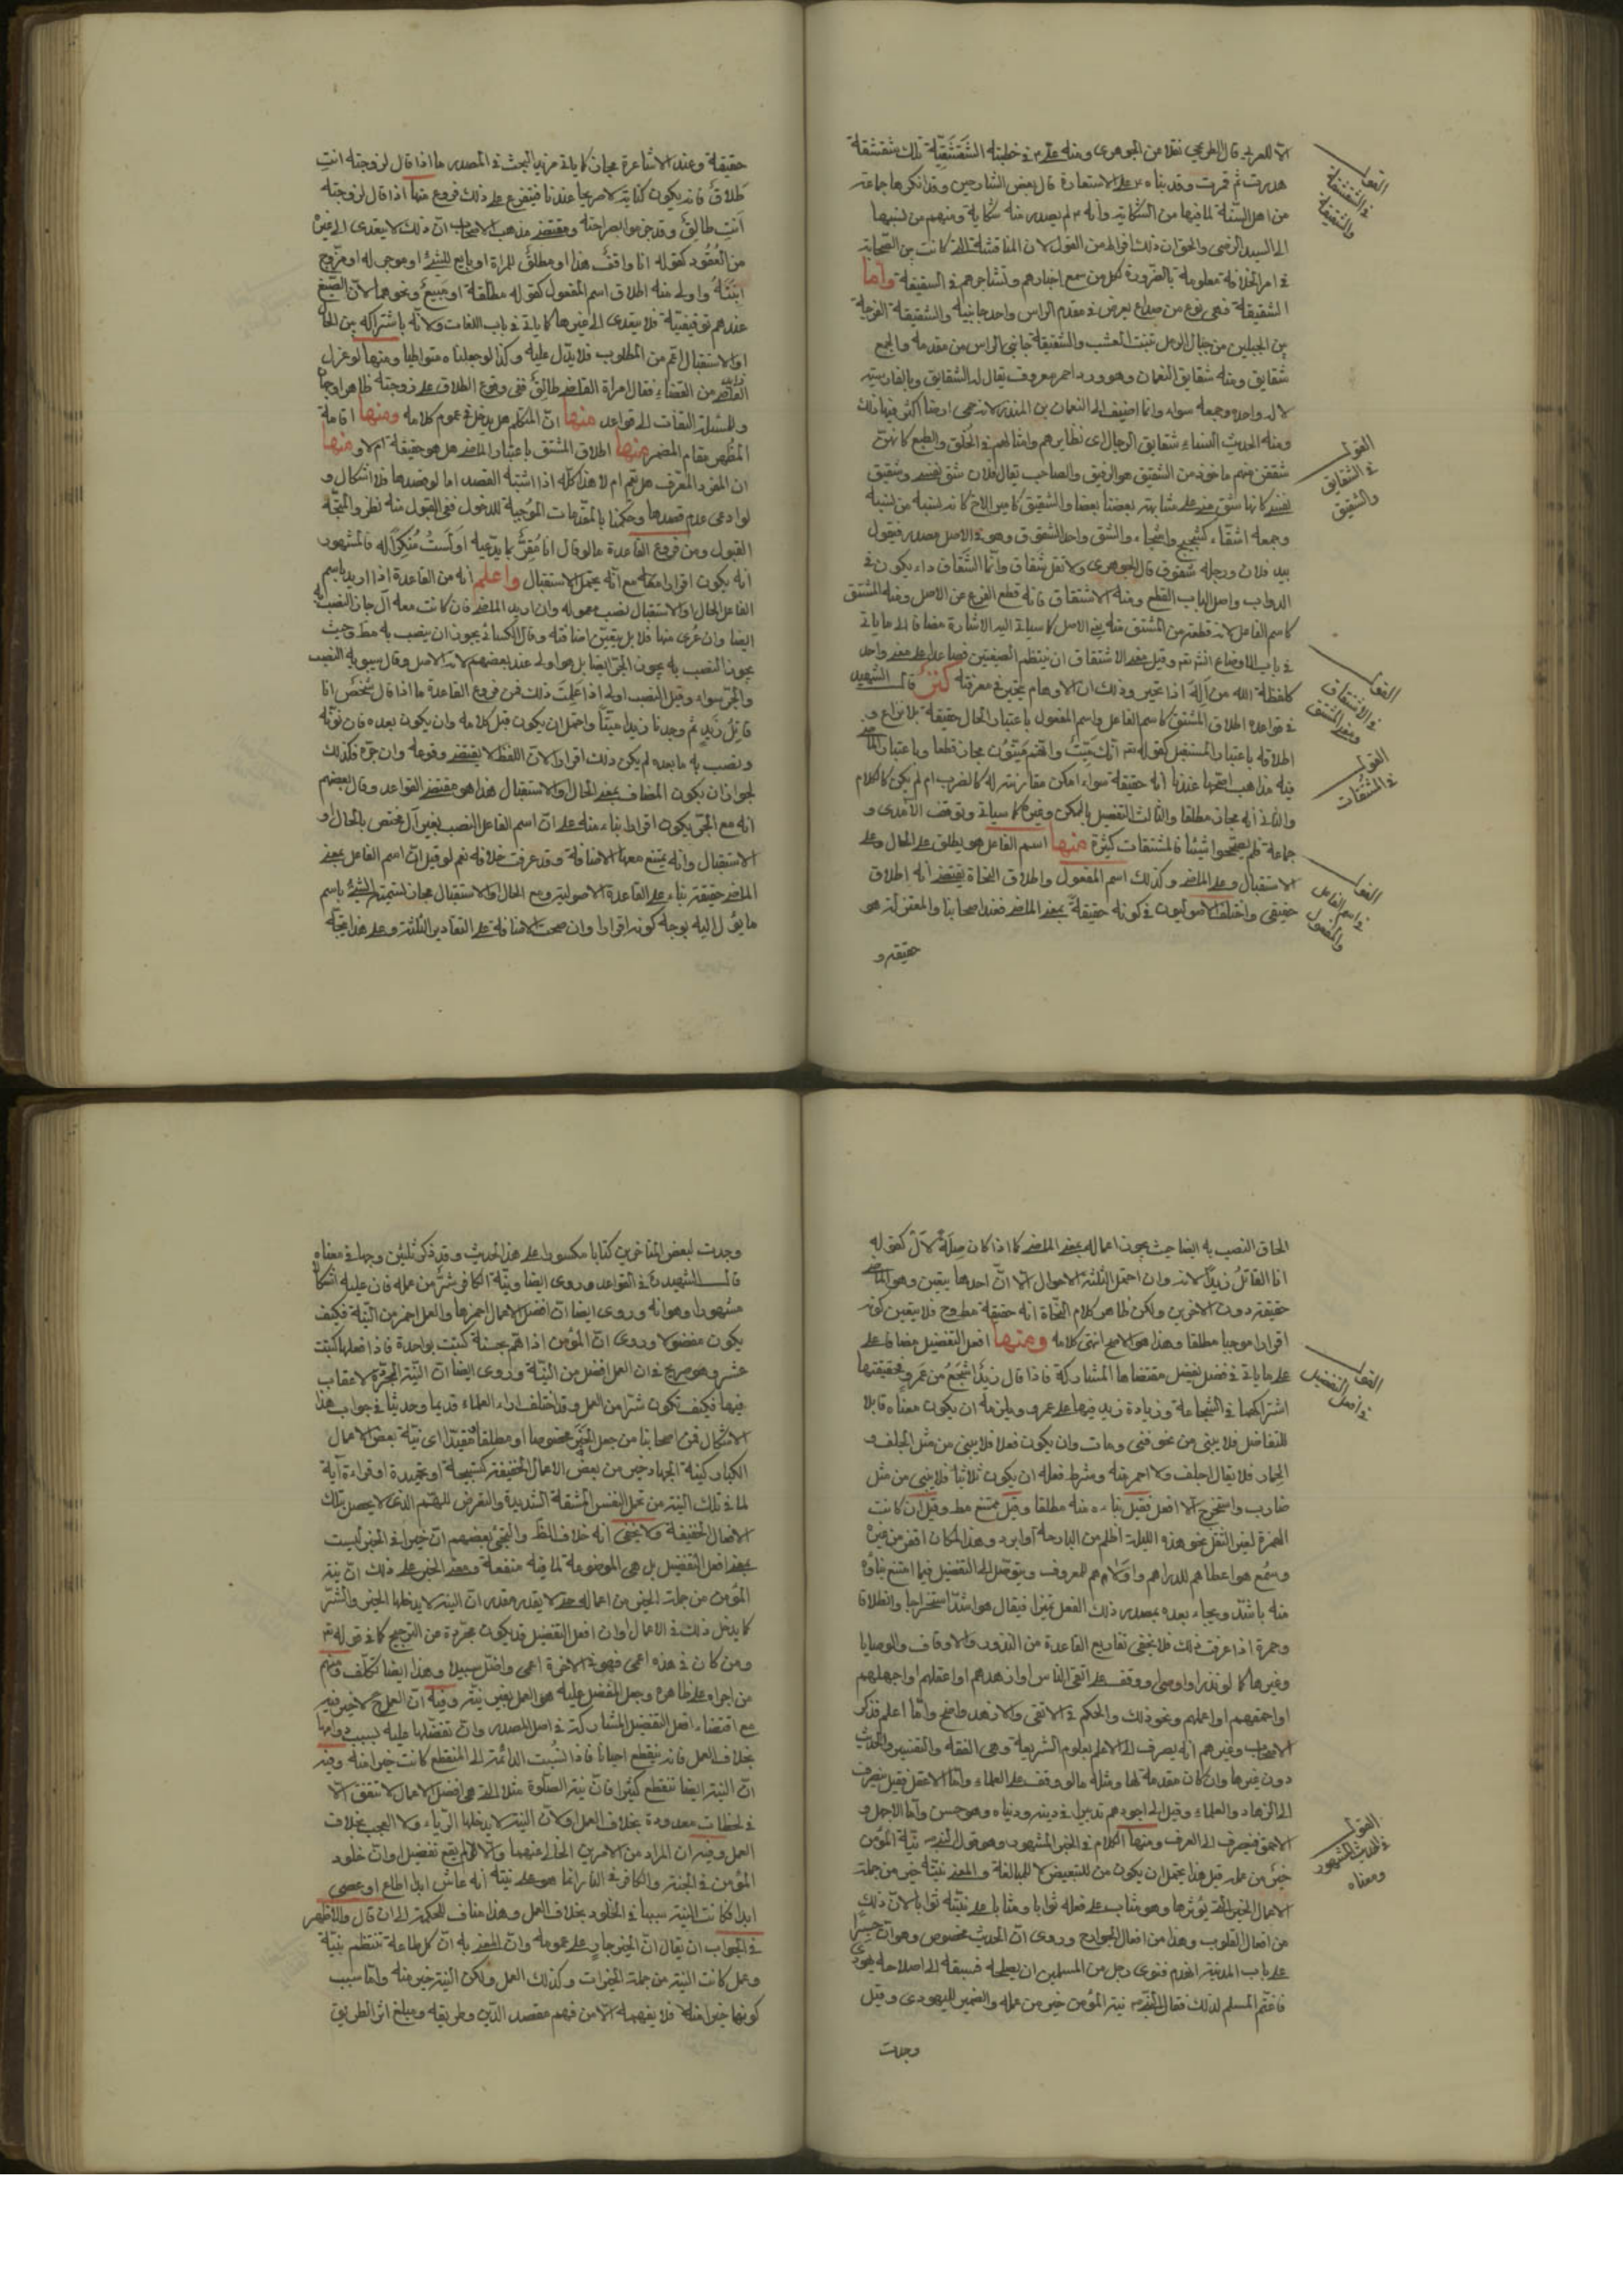 الا للعربي قال الطريحي نقلا من الجوهري ومنه علي ع في خطبته الشقشقية تلك شقشقة
هدرت ثم قرت وقد بناه ع على الاستعارة قال بعض الشارحين وقد انكرها جماعة
من اهل السنة لما فيها من الشكاية وانه ع لم يصدر منه شكاية ومنهم من نسبها
الى السيد الرضي والحق ان ذلك افراط من القول لان المناقشة التي كانت بين الصحابة
في امر الخلافة معلومة بالضرورة لكل من سمع اخبارهم وتشاجرهم في السقيفة واما
الشقيقة فهي نوع من صداع يعرض في مقدم الراس واحد جانبيه والشقيقة الفرجة
بين الجبلين من جبال الرمل تنبت العشب والشقيقة جانبي الراس من مقدمه والجمع
شقايق ومنه شقايق النعمان وهو ورد احمر معروف يقال له الشقايق وبالفارسية
لاله واحده وجمعه سواء وانما اضيف الى النعمان بن المنذر لانه حمى ارضا اكثر فيها ذلك
ومنه الحديث النساء شقايق الرجال اي نظايرهم وامثالهم في الخلق والطبع كانهن
شققن منهم ماخوذ من الشقيق هو الرفيق والصاحب يقال فلان شق نفسي وشقيق
نفسي كانما شق مني على مشابهة بعضنا بعضا والشقيق كامير الاخ كانه نسبه من نسبه
وجمعه اشقاء كشحيح واشحاء والشق واحد الشقوق وهو في الاصل مصدر فيقول
بيد فلان ورجله شقوق قال الجوهري ولا تقل شقاق وانما الشقاق داء يكون في
الدواب واصل الباب القطع ومنه الاشتقاق فانه قطع الفرع عن الاصل ومنه المشتق
كاسم الفاعل لانه قطعة من المشتق منه يعني الاصل كما سياتي اليه الاشارة مضافا الى ما ياتي
في باب الاوضاع انش تعم وقيل معنى الاشتقاق ان ينتظم الصيغتين فصاعدا على معنى واحد
كلفظة الله من اله اذا تحير وذلك ان الاوهام يتحير في معرفته كنز قال الشهيد
في قواعده اطلاق المشتق كاسم الفاعل واسم المفعول باعتبار الحال حقيقة بلا نزاع و
اطلاقه باعتبار المستقبل كقوله تعم انك ميت وانهم ميتون مجاز قطعا وباعتبار الماضي
فيه مذاهب اصحها عندنا انه حقيقة سواء امكن مقارنته له كالضرب ام لم يكن كالكلام
والثاني انه مجاز مطلقا والثالث التفصيل بالممكن وغيره كما سياتي وتوقف الآمدي و
جماعة فلم يصححوا شيئا فالمشتقات كثيرة منها اسم الفاعل هو يطلق على الحال وعلى
الاستقبال وعلى الماضي وكذلك اسم المفعول واطلاق النحاة يقتضي انه اطلاق
حقيقي واختلف الاصوليون في كونه حقيقة بمعنى الماضي فعند اصحابنا والمعتزلة هو
حقيقة و
القول في الشقشقة والشقيقة
القول في الشقايق والشقيق
القول في الاشتقاق ومعنى المشتق
القول في المشتقات
القول في اسم الفاعل والمفعول
حقيقة وعند الاشاعرة مجاز كما ياتي مزيد البحث في المصدر ما اذا قال لزوجته انت
طلاق فانه يكون كناية لا صريحا عندنا فيتفرع على ذلك فروع منها اذا قال لزوجته
انت طالق وقد جزموا بصراحته ومقتضى مذهب الاصحاب ان ذلك لا يتعدى الى غيره
من العقود كقوله انا واقف هذا او مطلق للمراة او بايع للشئ او موجر له او مزوج
ابنته واولى منه اطلاق اسم المفعول كقوله مطلقة او مبيع ونحوهما لان الصيغ
عندهم توقيفية فلا يتعدى الى غيرها كما ياتي في باب اللغات ولانه باشتراكه بين الحال
او الاستقبال اعم من المطلوب فلا يدل عليه وكذا لو جعلناه متواطيا ومنها لو عزل
القاضي من القضاء فقال امراة القاضي طالق ففي وقوع الطلاق على زوجته ظاهرا وجهان
وللمسئلة التفات الى قواعد منها ان المتكلم هل يدخل في عموم كلامه ومنها اقامة
المظهر مقام المضمر ومنها اطلاق المشتق باعتبار الماضي هل هو حقيقة ام لا ومنها
ان المفرد المعرف هل يعم ام لا هذا كله اذا اشتبه القصد اما لو قصدها فلا اشكال و
لو ادعى عدم قصدها وحكمنا بالمقدمات الموجبة للدخول ففي القبول منه نظر والمتجه
القبول ومن فروع القاعدة ما لو قال انا مقر بما يدعيه او لست منكرا له فالمشهور
انه يكون اقرارا مع انه يحتمل الاستقبال واعلم انه من القاعدة اذا اريد باسم
الفاعل الحال او الاستقبال نصب معموله وان اريد الماضي فان كانت معه ال جاز النصب به
ايضا وان عرى منها فلا بل يتعين اضافته وقال الكسائي يجوز ان ينصب به مط وحيث
يجوز النصب به يجوز الجر ايضا بل هو اولى عند بعضهم لانه الاصل وقال سيبويه النصب
والجر سواء وقيل النصب اولى اذا علمت ذلك فمن فروع القاعدة ما اذا قال شخص انا
قاتل زيد ثم وجدنا زيدا ميتا واحتمل ان يكون قبل كلامه وان يكون بعده فان نونه
ونصب به ما بعده لم يكن ذلك اقرارا لان اللفظ لا يقتضي وقوعه وان جره فكذلك
لجواز ان يكون المضاف بمعنى الحال والاستقبال هذا هو مقتضى القواعد وقال بعضهم
انه مع الجر يكون اقرارا بناء منه على ان اسم الفاعل النصب بغير ال مختص بالحال او
الاستقبال وانه يمتنع معها الاضافة وقد عرفت خلافه نعم لو قيل ان اسم الفاعل بمعنى
الماضي حقيقة بناء على القاعدة الاصولية ومع الحال والاستقبال مجاز لتسمية الشئ باسم
ما يؤل اليه يوجه كونه اقرارا وان صحت الاضافة على التقادير الثلثة وعلى هذا يتجه
الحاق النصب به ايضا حيث يجوز اعماله بمعنى الماضي كما اذا كان صلة لال كقوله
انا القاتل زيدا لانه وان احتمل الثلثة الاحوال الا ان احدها بيقين وهو الماضي
حقيقة دون الاخرين ولكن ظاهر كلام النحاة انه حقيقة مطروح فلا يتعين كونه
اقرارا موجبا مطلقا وهذا هو الاصح انتهى كلامه ومنها افعل التفضيل مضافا على
على ما ياتي في فصل يفصل مقتضاها المشاركة فاذا قال زيد اشجع من عمرو فحقيقتها
اشتراكهما في الشجاعة وزيادة زيد فيها على عمرو ويلزمه ان يكون معناه قابلا
للتفاضل فلا يبنى من نحو فنى ومات وان يكون فعلا فلا يبنى من مثل الجلف و
الحمار فلا يقال اجلف ولا احمر منه وشرط فعله ان يكون ثلاثيا فلا يبنى من مثل
ضارب واستخرج الا افعل فقيل بناءه منه مطلقا وقيل يمتنع مط وقيل ان كانت
الهمزة لغير النقل نحو هذه الليلة اظلم من البارحة او ابرد وهذا المكان اقفر من غيره
وسمع هو اعطاهم للدراهم واولاهم للمعروف ويتوصل الى التفضيل فيما امتنع بناؤه
منه باشد ويجاء بعده بمصدر ذلك الفعل تميزا فيقال هو اشد استخراجا وانطلاقا
وحمرة اذا عرفت ذلك فلا يخفى تفاريع القاعدة من النذور والاوقاف والوصايا
وغيرها كما لو نذر او اوصى او وقف على اتقى الناس او ازهدهم او اعقلهم او اجهلهم
او احمقهم او اعلمهم ونحو ذلك والحكم في الاتقى والازهد واضح واما اعلم فذكر
الاصحاب وغيرهم انه يصرف الى الاعلم بعلوم الشريعة وهي الفقه والتفسير والحديث
دون غيرها وان كان مقدمة لها ومثله ما لو وقف على العلماء واما الاعقل فقيل يصرف
الى الزهاد والعلماء وقيل الى اجودهم تدبيرا في دينه ودنياه وهو حسن واما الاجهل و
الاحمق فيصرف الى العرف ومنها الكلام في الخبر المشهور وهو قول النبي ص نية المؤمن
خير من عمله قيل هذا يحتمل ان يكون من للتبعيض لا للمبالغة والمعنى نيته خير من جملة
الاعمال الخير التي يؤثرها وهو مثاب على فعله ثوابا ومثابا على نيته ثوابا لان ذلك
من افعال القلوب وهذا من افعال الجوارح وروى ان الحديث مخصوص وهو ان جسرا
على باب المدينة انهدم فنوى رجل من المسلمين ان يصلحه فسبقه الى اصلاحه يهودي
فاغتم المسلم لذلك فقال النبي ص نية المؤمن خير من عمله والضمير لليهودي وقيل
وجدت
القول في اصل التفضيل
القول في الحديث المشهور ومعناه
وجدت لبعض المتاخرين كتابا مكسورا على هذا الحديث وقد ذكر ثلثين وجها في معناه
قال الشهيد ره في القواعد وروى ايضا ونية الكافر شر من عمله فان عليه اشكالا
مشهورا وهو انه وروى ايضا ان افضل الاعمال احمزها والعمل احمز من النية فكيف
يكون مفضولا وروى ان المؤمن اذا هم بحسنة كتبت بواحدة فاذا فعلها كتبت
عشر وهو صريح في ان العمل افضل من النية وروى ايضا ان النية المجردة لا عقاب
فيها فكيف تكون شرا من العمل وقد اختلف اراء العلماء قديما وحديثا في جواب هذا
الاشكال فمن اصحابنا من جعل الخبر مخصوصا او مطلقا مقيدا اي نية بعض الاعمال
الكبار كنية الجهاد خير من بعض الاعمال الخفيفة كتسبيحة او تحميدة او قراءة آية
لما في تلك النية من تحمل النفس المشقة الشديدة والتعرض للهم الذي لا يحصل بتلك
الافعال الخفيفة ولا يخفى انه خلاف الظ والتجئ بعضهم ان خيرا في الخبر ليست
بمعنى افعل التفضيل بل هي الموضوعة لما فيه منفعة ومعنى الخبر على ذلك ان نية
المؤمن من جملة الخير من اعماله حتى لا يقدر مقدر ان النية لا يدخلها الخير والشر
كما يدخل ذلك في الاعمال وان افعل التفضيل قد يكون مجردة من الترجيح كما في قوله تعم
ومن كان في هذه اعمى فهو في الاخرة اعمى واضل سبيلا وهذا ايضا تكلف ومنهم
من اجراه على ظاهره وجعل المفضل عليه هو العمل بغير نية وفيه ان العمل ح لا خير فيه
مع اقتضاء افعل التفضيل المشاركة في اصل المصدر وان تفضلها عليه لسبب دوامها
بخلاف العمل فانه ينقطع احيانا فاذا نسبت الدائمة الى المنقطع كانت خيرا منه وفيه
ان النية ايضا تنقطع كثيرا فان نية الصلوة مثلا التي هي افضل الاعمال لا تتفق الا
في لحظات معدودة بخلاف العمل او لان النية لا يدخلها الرياء ولا العجب بخلاف
العمل وفيه ان المراد من الامرين الخالي عنهما والا لم يقع تفضيل او ان خلود
المؤمن في الجنة والكافر في النار انما هو على نيته انه عاش ابدا اطاع او عصى
ابدا فكانت النية سببا في الخلود بخلاف العمل وهذا مناف للحكمة الى ان قال والاظهر
في الجواب ان يقال ان الخبر جار على عمومه وان المعنى به ان كل طاعة تنتظم بنية
وعمل كانت النية من جملة الخيرات وكذلك العمل ولكن النية خير منه واما سبب
كونها خيرا منه فلا يفهمه الا من فهم مقصد الدين وطريقه ومبلغ اثر الطريق